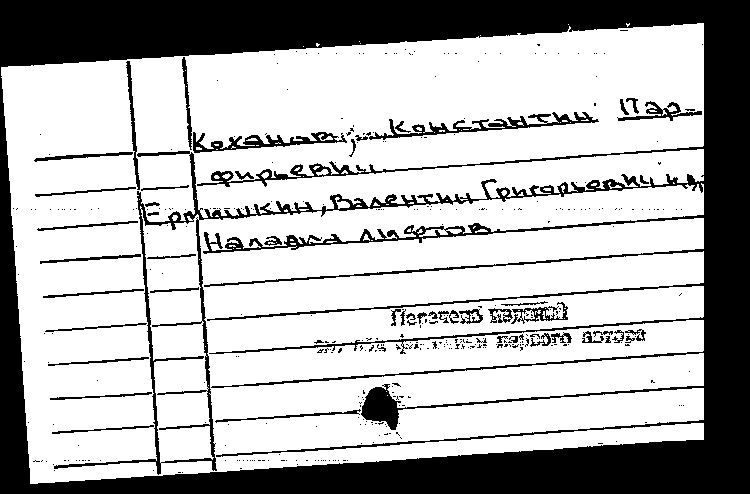 Константин Пар-
фирьевич.
Ермишкин, Валентин Григорьевич и др.
Наладка лифтов.
Перечень изданий
см. под фамилией первого автора